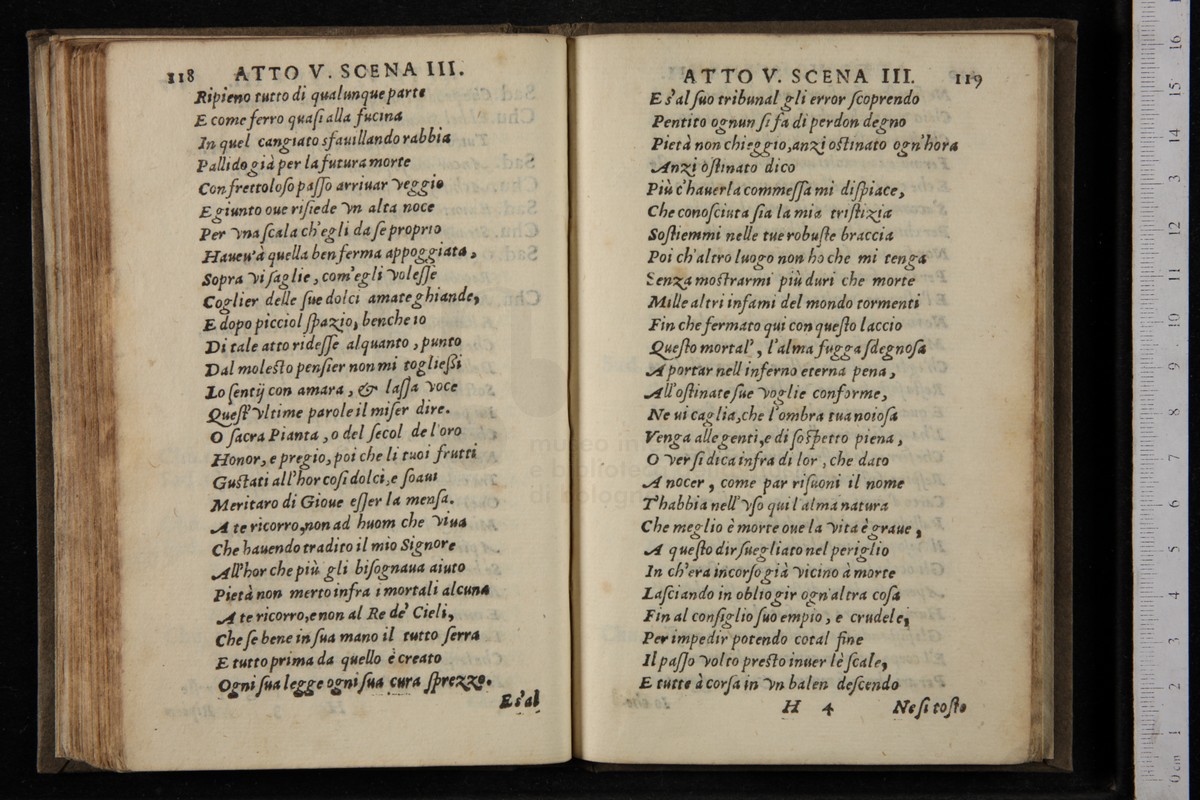 118 ATTO V. SCENA III.
Ripieno tutto di qualunque parte
E come ferro quaſi alla fucina
In quel cangiato sfauillando rabbia
Pallido già per la futura morte
Con frettoloſo paſſo arriuar veggio
E giunto oue riſiede vn alta noce
Per vna ſcala ch'egli da ſe proprio
Haueu'à quella ben ferma appoggiata,
Sopra vi ſaglie, com'egli voleſſe
Coglier delle ſue dolci amate ghiande,
E dopo picciol ſpazio, benche io
Di tale atto rideſſe alquanto, punto
Dal moleſto penſier non mi toglieſsi
Io ſentij con amara, & laſſa voce
Queſt' vltime parole il miſer dire.
O ſacra Pianta, o del ſecol de l'oro
Honor, e pregio, poi che li tuoi frutti
Guſtati all'hor coſi dolci, e ſoaui
Meritaro di Gioue eſſer la menſa.
A te ricorro, non ad huom che viua
Che hauendo tradito il mio Signore
All'hor che più gli biſognaua aiuto
Pietà non merto infra i mortali alcuna
A te ricorro, e non al Re de' Cieli,
Che ſe bene in ſua mano il tutto ſerra
E tutto prima da quello è creato
Ogni ſua legge ogni ſua cura ſprezzo.
E s'al
ATTO V. SCENA III. 119
E s'al ſuo tribunal gli error ſcoprendo
Pentito ognun ſi fa di perdon degno
Pietà non chieggio, anzi oſtinato ogn'hora
Anzi oſtinato dico
Più c'hauerla commeſſa mi diſpiace,
Che conoſciuta ſia la mia triſtizia
Soſtiemmi nelle tue robuſte braccia
Poi ch'altro luogo non ho che mi tenga
Senza moſtrarmi più duri che morte
Mille altri infami del mondo tormenti
Fin che fermato qui con queſto laccio
Queſto mortal', l'alma fugga ſdegnoſa
A portar nell inferno eterna pena,
All'oſtinate ſue voglie conforme,
Ne ui caglia, che l'ombra tua noioſa
Venga alle genti, e di ſoſpetto piena,
O ver ſi dica infra di lor, che dato
A nocer, come par riſuoni il nome
T'habbia nell'vſo qui l'alma natura
Che meglio è morte oue la vita è graue,
A queſto dir ſuegliato nel periglio
In ch'era incorſo già vicino à morte
Laſciando in oblio gir ogn'altra coſa
Fin al conſiglio ſuo empio, e crudele,
Per impedir potendo cotal fine
Il paſſo volto preſto inuer lè ſcale,
E tutte à corſa in vn balen deſcendo
H 4 Ne ſi toſto